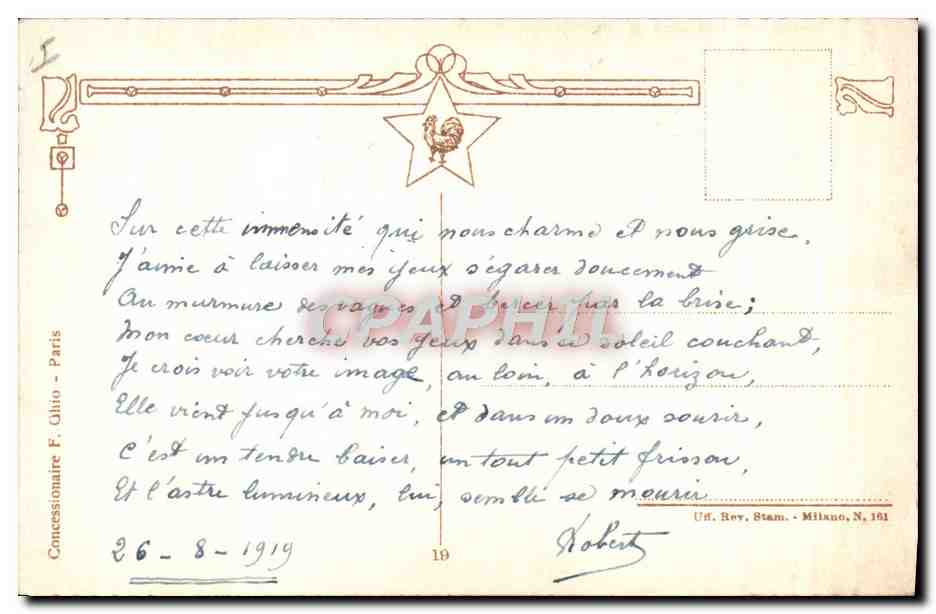 I
Sur cette immensité qui nous charme et nous grise,
J'aime à laisser mes yeux s'égarer doucement
Au murmure des vagues et bercer par la brise;
Mon cœur cherche vos yeux dans ce soleil couchant,
Je crois voir votre image, au loin, à l'horizon,
Elle vient jusqu'à moi, et dans un doux sourir,
C'est un tendre baiser, un tout petit frisson,
Et l'astre lumineux, lui, semble se mourir
26-8-1919
Robert
19
Uff. Rev. Stam. - Milano, N, 161
Concessionaire F. Ghio - Paris
CPAPHIL